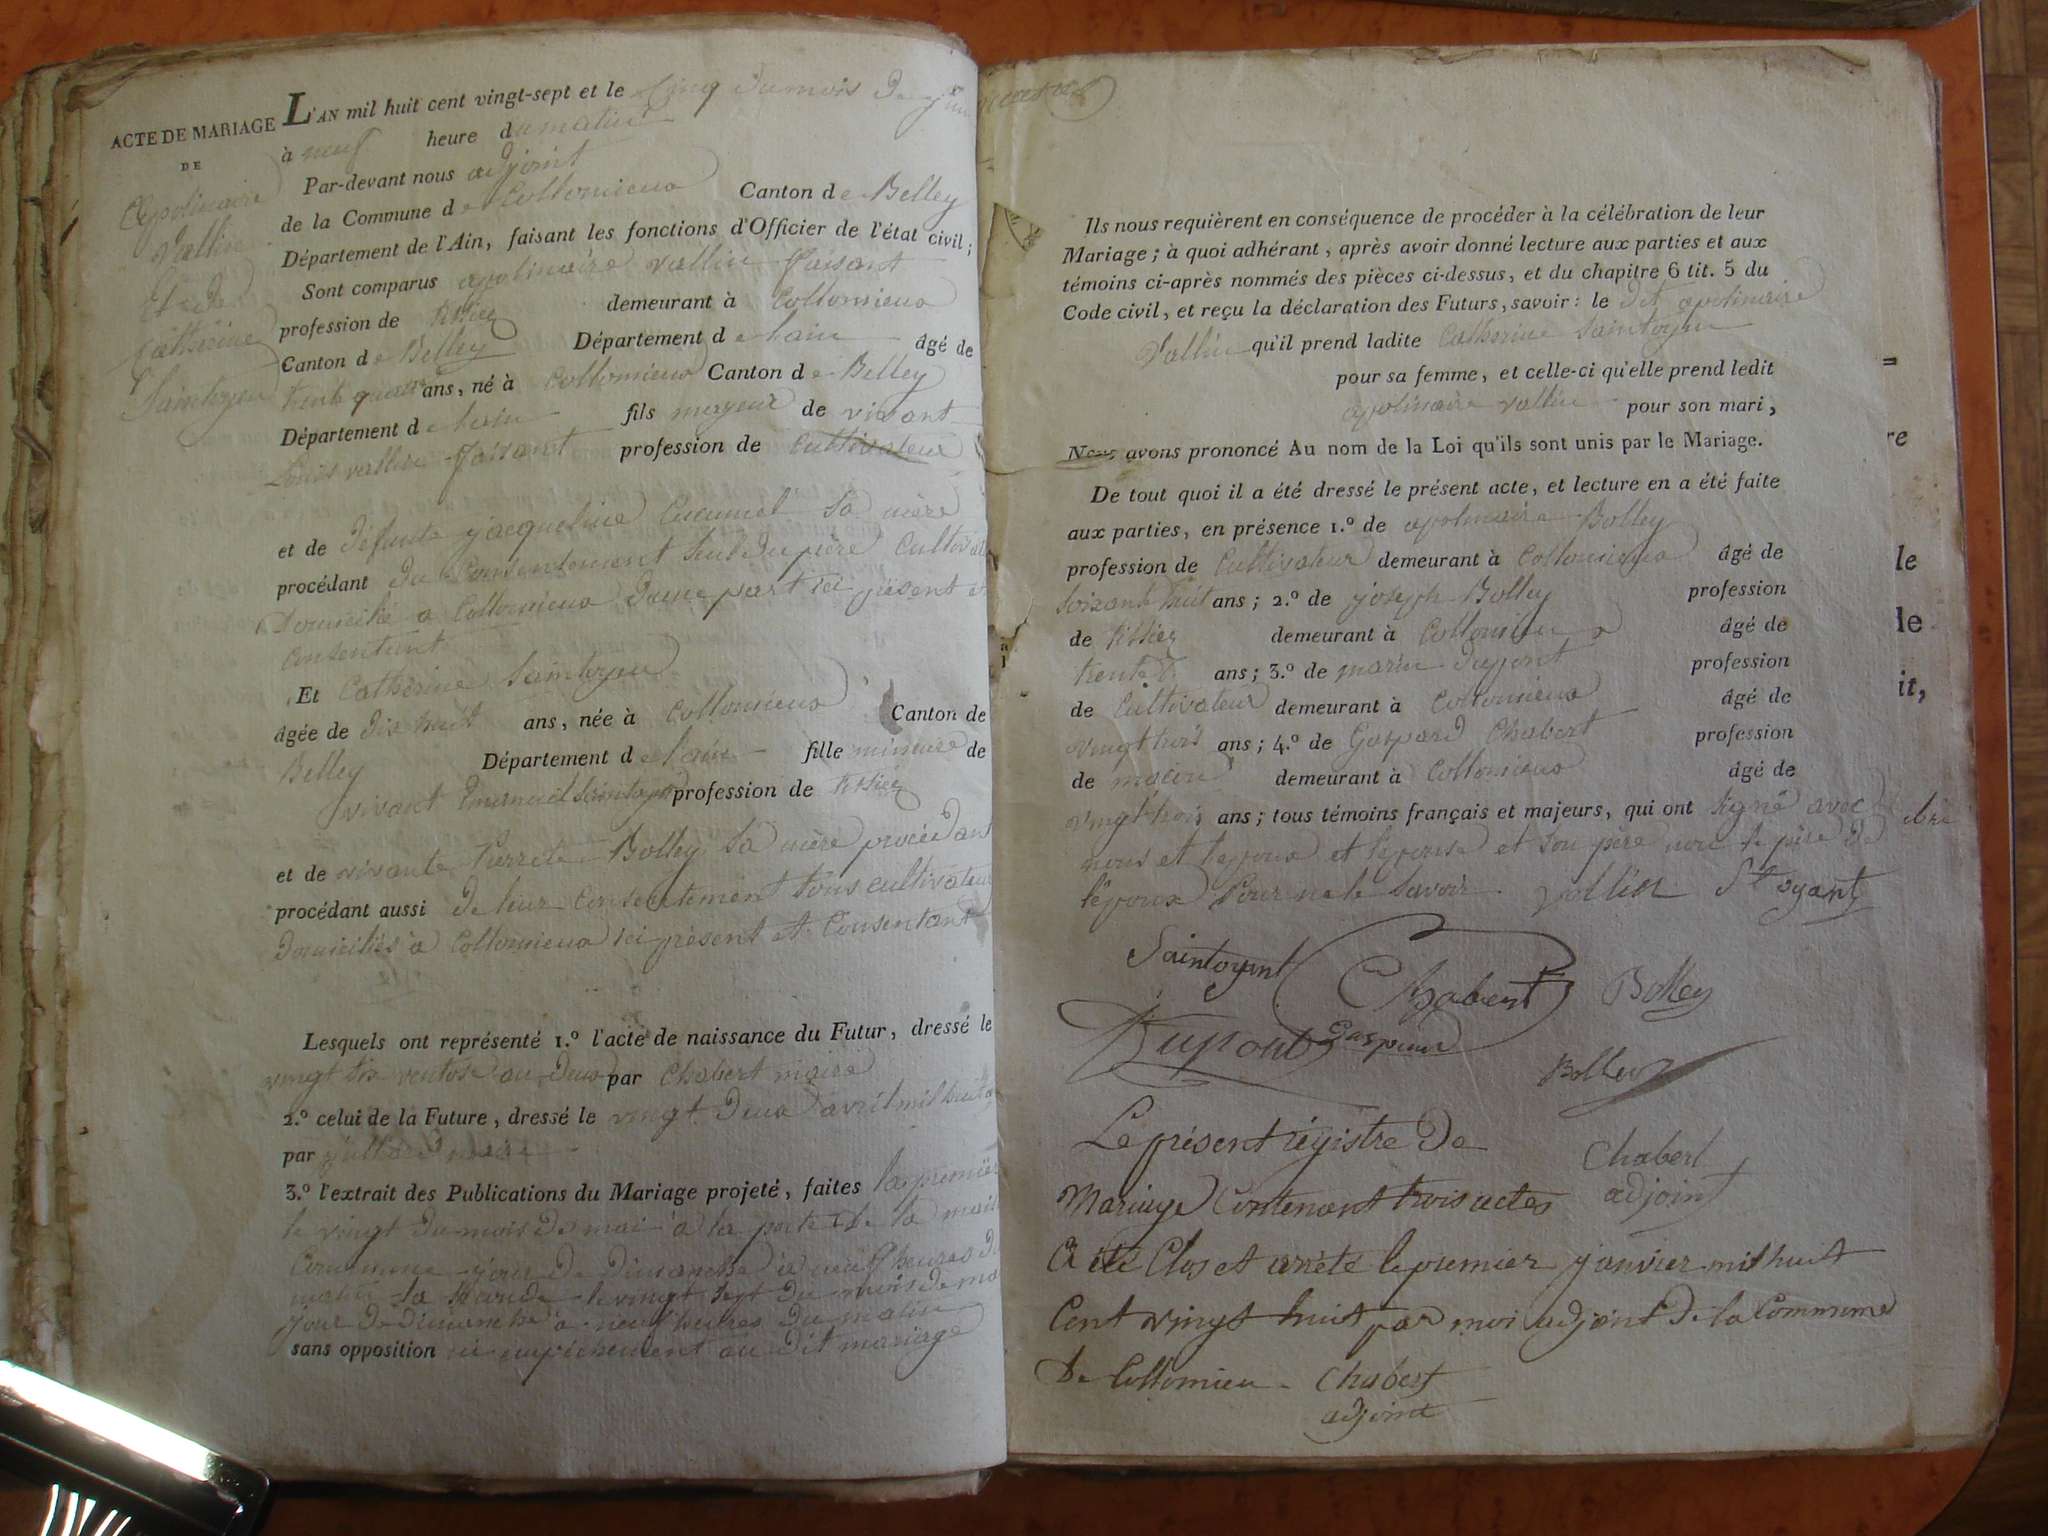 ACTE DE MARIAGE
DE
Apolinaire
Vallin
Et de
Cathérine
Saintoyen
L'AN mil huit cent vingt-sept et le Cinq du mois de juin
à neuf heure du matin
Par-devant nous adjoint
de la Commune de Collomieux Canton de Belley
Département de l'Ain, faisant les fonctions d'Officier de l'état civil;
Sont comparus apolinaire vallin faisant
profession de tissier demeurant à Collomieux
Canton de Belley Département de lain âgé de
trente quatre ans, né à Collomieux Canton de Belley
Département de lain fils mageur de vivant
Louis vallin faisant profession de Cultivateur
et de défunte jacqueline Cucumel sa mère
procédant du Consentement seul du père Cultivat
domicilié a Collomieux dune part ici présent et
Consentant
Et Cathérine Saintoyen
âgée de dix huit ans, née à Collomieux Canton de
Belley Département de lain fille mineure de
vivant Saintoyen profession de tissier
et de vivante Pierrete Bolley sa mère procédant
procédant aussi de leur Consentement tous cultivateurs
domiciliés a Collomieux ici présent et Consentant
Lesquels ont représenté 1.º l'acte de naissance du Futur, dressé le
vingt six ventose an deux par Chabert maire
2.º celui de la Future, dressé le vingt deux avril mil huit
par maire
3.º l'extrait des Publications du Mariage projeté, faites la premiere
le vingt du mois de mai a la porte de la
Commune jour de dimanche a neuf heures du
matin la seconde le vingt sept du mois de mai
jour de dimanche a neuf heures du matin
sans opposition ni empêchement au dit mariage
Ils nous requièrent en conséquence de procéder à la célébration de leur
Mariage; à quoi adhérant, après avoir donné lecture aux parties et aux
témoins ci-après nommés des pièces ci-dessus, et du chapitre 6 tit. 5 du
Code civil, et reçu la déclaration des Futurs, savoir: le dit apolinaire
Vallin qu'il prend ladite Catherine Saintoyen
pour sa femme, et celle-ci qu'elle prend ledit
apolinaire vallin pour son mari,
Nous avons prononcé Au nom de la Loi qu'ils sont unis par le Mariage.
De tout quoi il a été dressé le présent acte, et lecture en a été faite
aux parties, en présence 1.º de apolinaire Bolley
profession de Cultivateur demeurant à Collomieux âgé de
soixante huit ans; 2.º de joseph Bolley profession
de tissier demeurant à Collomieux âgé de
trente ans; 3.º de marin dupont profession
de Cultivateur demeurant à Collomieux âgé de
vingt trois ans; 4.º de Gaspard Chabert profession
de demeurant à Collomieux âgé de
vingt trois ans; tous témoins français et majeurs, qui ont signé avec
nous et lepoux et lepouse et son père non le père de
lépoux Pour ne le Savoir. Vallin St oyant
Saintoyant Chabert Bolley
Dupont Gaspard
Bolley
Le présent régistre de
Chabert
Mariage Contenant trois actes
adjoint
a été Clos et arrêté le premier janvier mil huit
Cent vingt huit par moi adjoint de la Commune
de Collomieu - Chabert
adjoint
=
re
le
le
it,